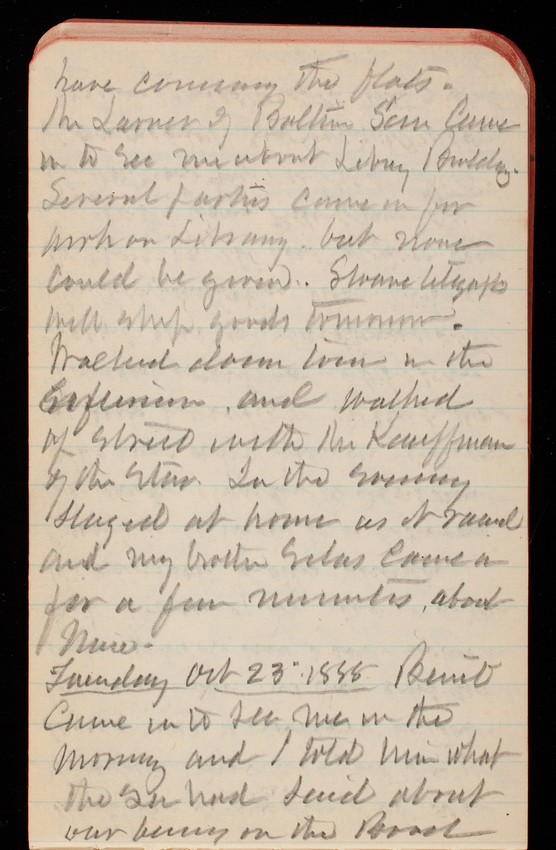 have concerning the flats.
Mr Larner of Baltim Sam Came
in to see me about Libray Buildg.
Several parties came in for
work on Library. but none
could be given. Sloane telegaphs
will ship goods tomorrow.
Walked down town in the
afternoon, and walked
up street with Mr Kauffman
of the Star. In the Evening
Stayed at home as it rained
and my brother Silas came in
for a few minutes, about
Nine.
Tuesday Oct 23d 1888 Benit
Came in to see me in the
morning and I told him what
the Sec had said about
our being on the Board